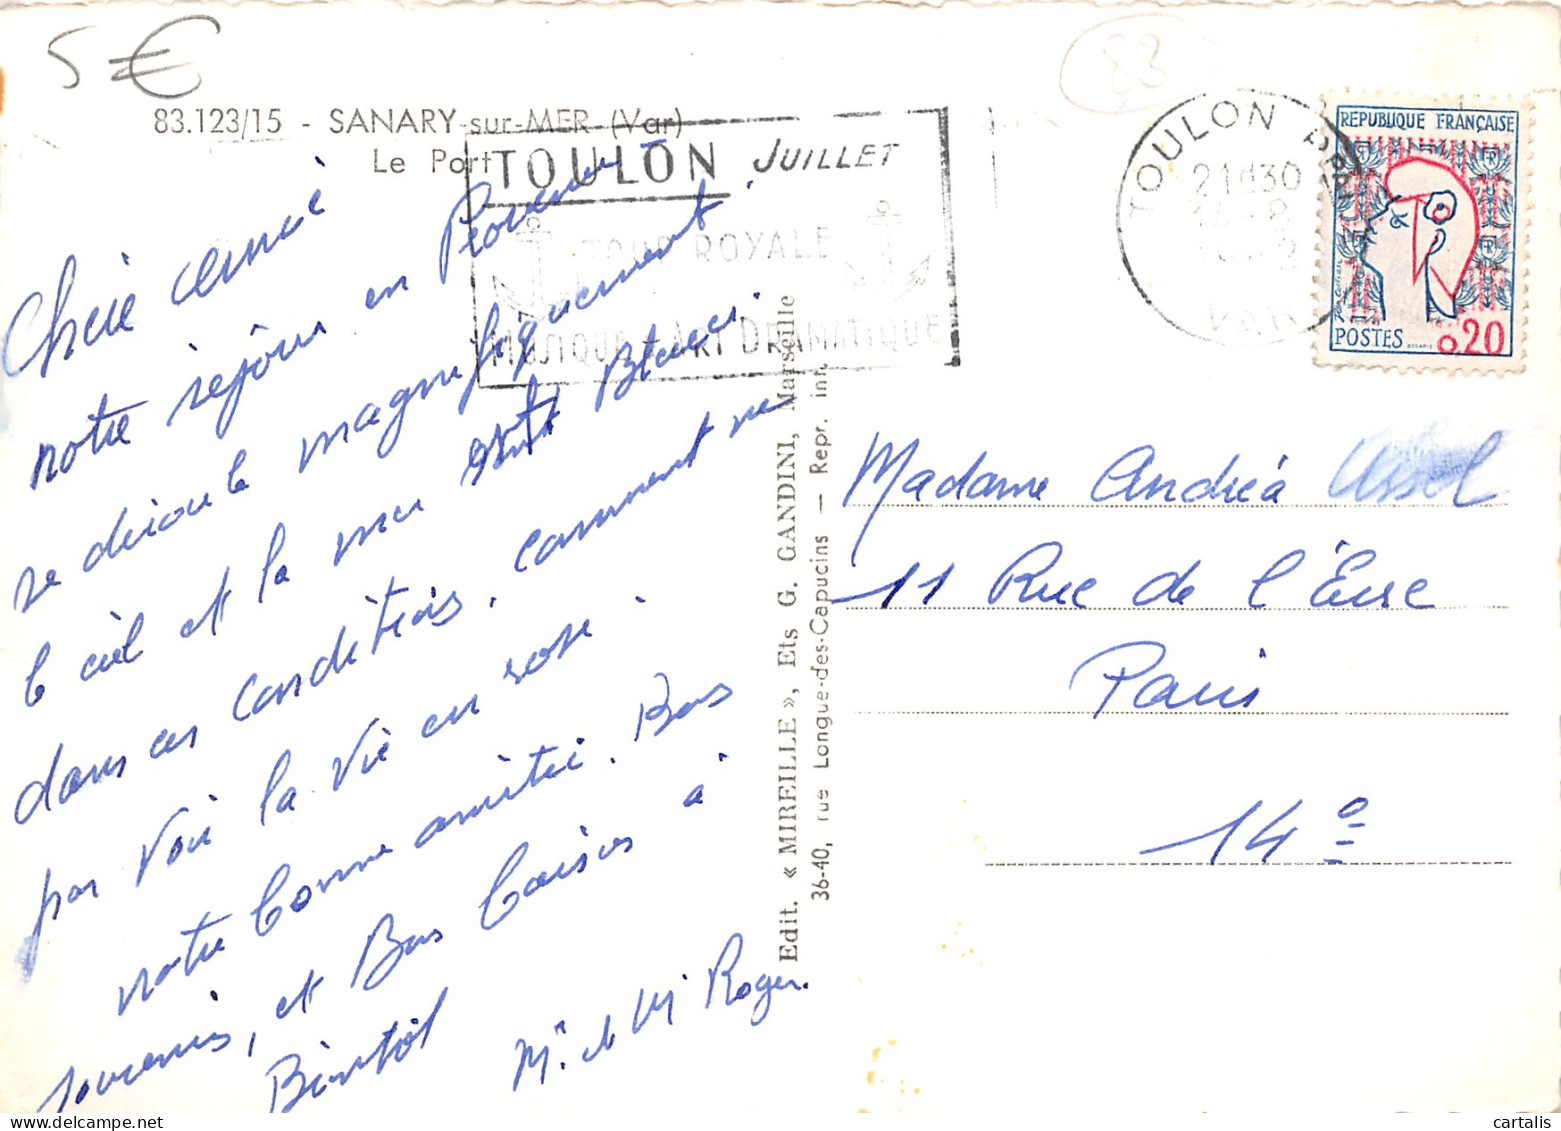 5€
83
83.123/15 - SANARY-sur-MER (Var)
Le Port
TOULON JUILLET
TOUR ROYALE
MUSIQUE - ART DRAMATIQUE
TOULON PPAL
21H30
14-8
VAR
REPUBLIQUE FRANÇAISE
POSTES 0.20
Chere amie
notre sejour en Provence
se deroule magnifiquement.
le ciel et la mer sont Bleus.
dans ces conditions, comment ne
pas voir la vie en rose.
notre bonne amitié. Bons
souvenirs, et Bons baisers à
Bientôt
Mr. et Me Roger.
Edit. « MIREILLE », Ets G. GANDINI, Marseille
36-40, rue Longue-des-Capucins — Repr. int.
Madame Andréa Assel
11 Rue de l'Eure
Paris
14e
cartalis